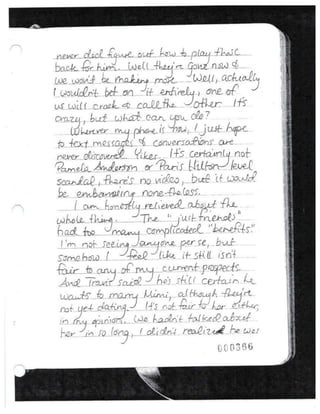 never did figure out how to play those
back for him. Well they're gone now &
we won't be making more. Well, actually
I wouldn't bet on it entirely, one of
us will crack & call the other. It's
crazy, but what can you do?
Wherever my phone is now, I just hope
to text messages & conversations are
never discovered. Yikes. It's certainly not
Pamela Anderson or Paris Hilton level
scandal, there's no video, but it would
be embarrassing none-the-less.
I am honestly relieved about the
whole thing. The "just friends"
had too many complicated "benefits."
I'm not seeing anyone per se, but
somehow I feel like it still isn't
fair to any of my current prospects.
And Travis said he's still certain he
wants to marry Mimi, although they're
not yet dating. It's not fair to her either,
in my opinion. We hadn't talked about
her in so long, I didn't realize he was
000366